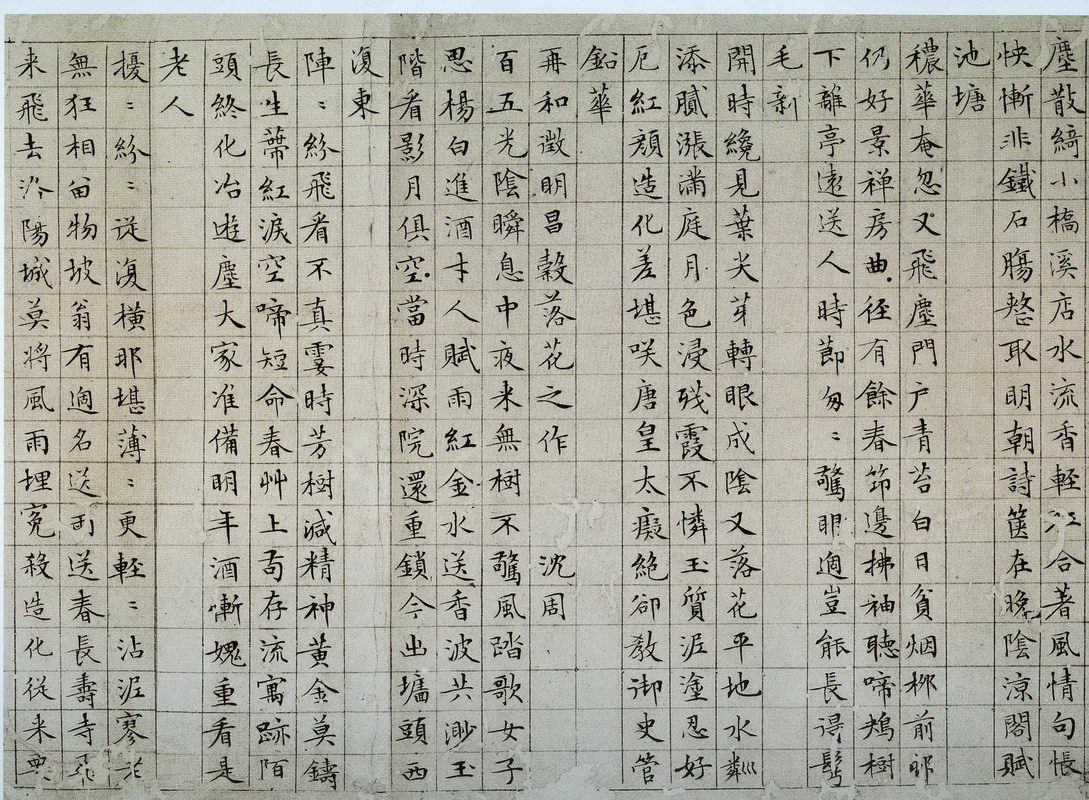 塵散綺小橋溪店水流香輕紅合著風情句悵
怏慚非鐵石腸整取明朝詩篋在晚陰涼閣賦
池塘
穠華奄忽又飛塵門戶青苔白日貧烟柳前郎
仍好景禅房曲徑有餘春節邊拂袖聽啼鴂樹
下離亭遠送人時節匆〻驚眼過豈能長得髩
毛新
開時纔見葉尖芽轉眼成陰又落花平地水粼巛
添膩漲滿庭月色浸殘霞不憐玉質泥塗忍好
厄紅顏造化差堪咲唐皇太癡絕卻教御史管
鉛華
再和徵明昌穀落花之作 沈周
百五光陰瞬息中夜来無樹不驚風踏歌女子
思楊白進酒才人賦雨紅金水送香波共渺玉
階看影月俱空當時深院還重鎖今出墻頭西
復東
陣〻紛飛看不真霎時芳樹減精神黃金莫鑄
長生蒂紅淚空啼短命春艸上苟存流寓跡陌
頭終化冶遊塵大家准備明年酒慚媿重看是
老人
擾〻紛〻從復橫那堪薄〻更輕〻沾泥寥於
無狂相留物坡翁有過名送雨送春長壽寺飛
来飛去洛陽城莫將風雨埋冤殺造化從来要